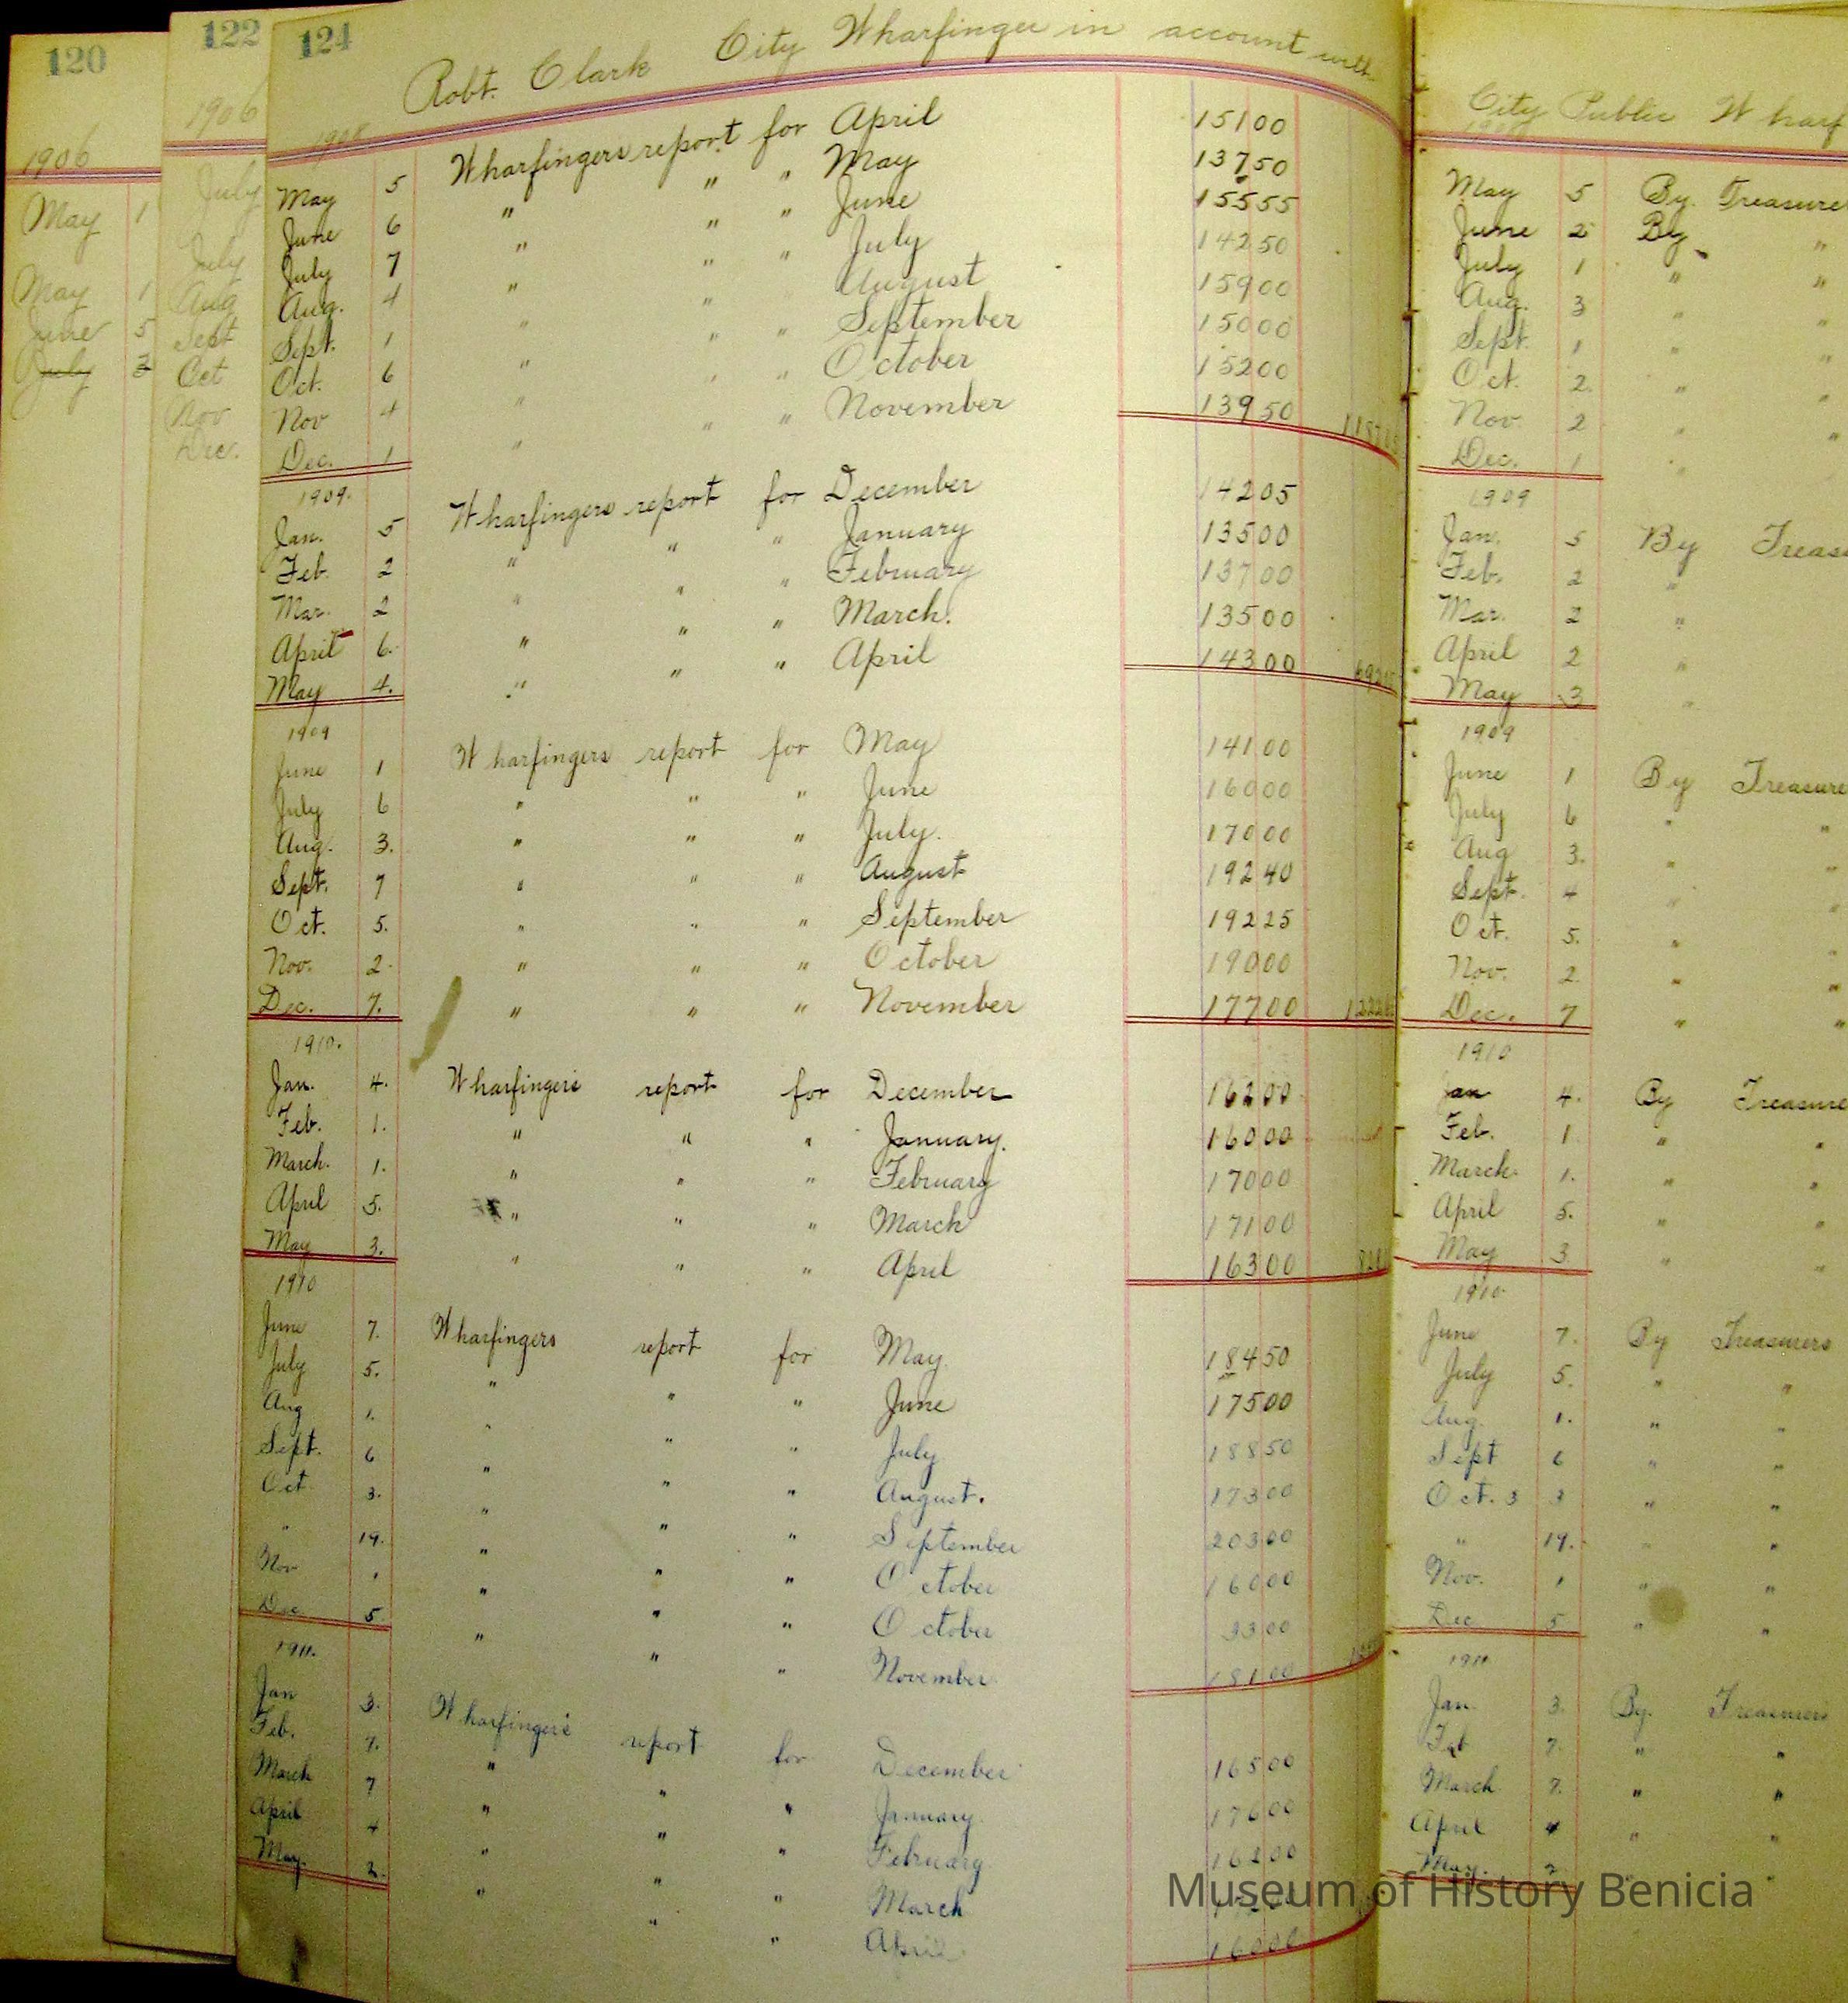 120
1906
May 1
May 1
June 5
July 3
122
1906
July
July
Aug
Sept
Oct
Nov
Dec.
124
Robt. Clark City Wharfinger in account with
1908
May 5 Wharfingers report for April 151 00
June 6 " " " May 137 50
July 7 " " " June 155 55
Aug. 4 " " " July 142 50
Sept. 1 " " August 159 00
Oct. 6 " " " September 150 00
Nov 4 " " " October 152 00
Dec. 1 " " " November 139 50
1909.
Jan. 5 Wharfingers report for December 142 05
Feb. 2 " " " January 135 00
Mar. 2 " " " February 137 00
April 6. " " " March. 135 00
May 4. " " " April 143 00
1909
June 1 Wharfingers report for May 141 00
July 6 " " " June 160 00
Aug. 3. " " " July. 170 00
Sept. 7 " " " August 192 40
Oct. 5. " " " September 192 25
Nov. 2. " " " October 190 00
Dec. 7. " " " November 177 00
1910.
Jan. 4. Wharfingers report for December 162 00
Feb. 1. " " " January. 160 00
March. 1. " " " February 170 00
April 5. " " " March 171 00
May 3. " " " April 163 00
1910
June 7. Wharfingers report for May. 184 50
July 5. " " " June 175 00
Aug 1. " " " July 188 50
Sept. 6 " " " August. 173 00
Oct 3. " " " September 203 00
" 19. " " " October 160 00
Nov 1 " " " October 33 00
Dec 5 " " " November 181 00
1911.
Jan 3. Wharfingers report for December 165 00
Feb. 7. " " " January 176 00
March 7 " " " February 162 00
April 4 " " " March
May. 2. " " April 160 00
City Public Wharf
May 5 By Treasure
June 2 By "
July 1 " "
Aug. 3 " "
Sept. 1 " "
Oct. 2. " "
Nov. 2 " "
Dec. 1 "
1909
Jan. 5 By Treas
Feb. 2 "
Mar. 2 "
April 2 "
May 3 "
1909
June 1 By Treasure
July 6 " "
Aug 3. " "
Sept. 4 " "
Oct. 5. " "
Nov. 2 " "
Dec. 7 " "
1910
Jan 4. By Treasure
Feb. 1 " "
March. 1. " "
April 5. " "
May 3 " "
1910.
June 7. By Treasurers
July 5. " "
Aug. 1. " "
Sept 6 " "
Oct. 3 3 " "
" 19. " "
Nov. 1 " "
Dec 5 " "
1911
Jan. 3. By. Treasurers
Feb 7. " "
March 7. " "
April 4 " "
May. 2 " "
Museum of History Benicia